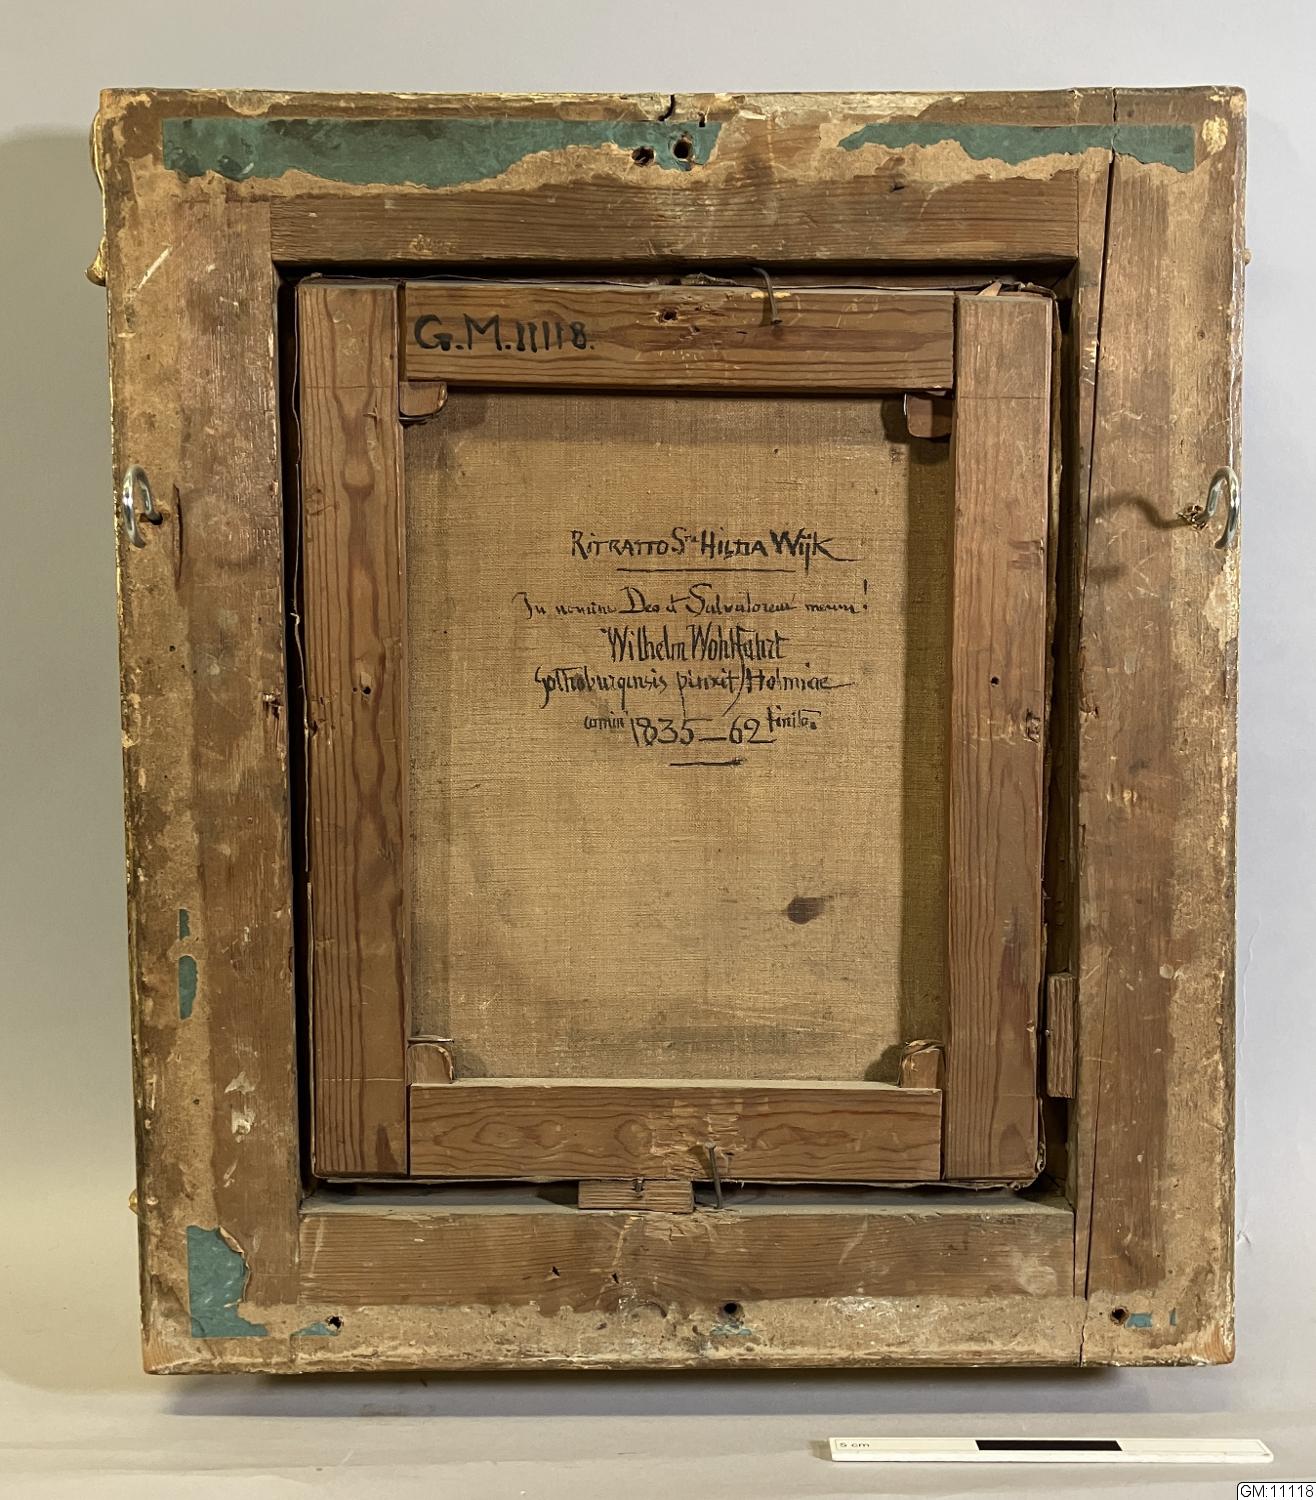 G.M.11118.
RITRATTO Sta HILDA Wijk
In nomine Deo et Salvatorem meum!
Wilhelm Wohlfahrt
Gothoburgensis pinxit) Holmiae
comin 1835—62 finito.
5 cm
GM:11118